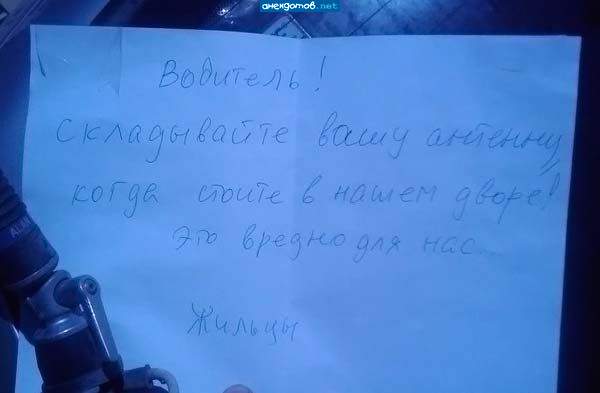 анекдотов.net
Водитель!
Складывайте вашу антенну,
когда стоите в нашем дворе!
Это вредно для нас...
Жильцы